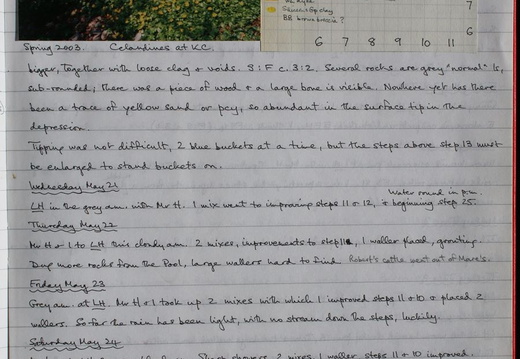 7
Seven & Spolay
BB brown breccia?
6
6 7 8 9 10 11
Spring 2003. Celandines at KC.
bigger, together with loose clag + voids. S:F c. 3:2. Several rocks are grey "normal" ls,
sub-rounded; there was a piece of wood + a large bone is visible. Nowhere yet has there
been a trace of yellow sand or pcy, so abundant in the surface tip in the
depression.
Tipping was not difficult, 2 blue buckets at a time, but the steps above step 13 must
be enlarged to stand buckets on.
Wednesday May 21
Water round in p.m.
LH in the grey am. with Mr H. 1 mix went to improving steps 11 & 12, & beginning step 25.
Thursday May 22
Mr H + I to LH this cloudy am. 2 mixes, improvements to step 11, 1 waller placed, grouting.
Dug more rocks from the Pool, large wallers hard to find. Robert's cattle went out of Mare's.
Friday May 23
Grey am. at LH. Mr H + I took up 2 mixes with which I improved steps 11 & 10 & placed 2
wallers. So far the rain has been light, with no stream down the steps, luckily.
Saturday May 24
Short showers. 2 mixes, 1 waller, steps 11 + 10 improved.